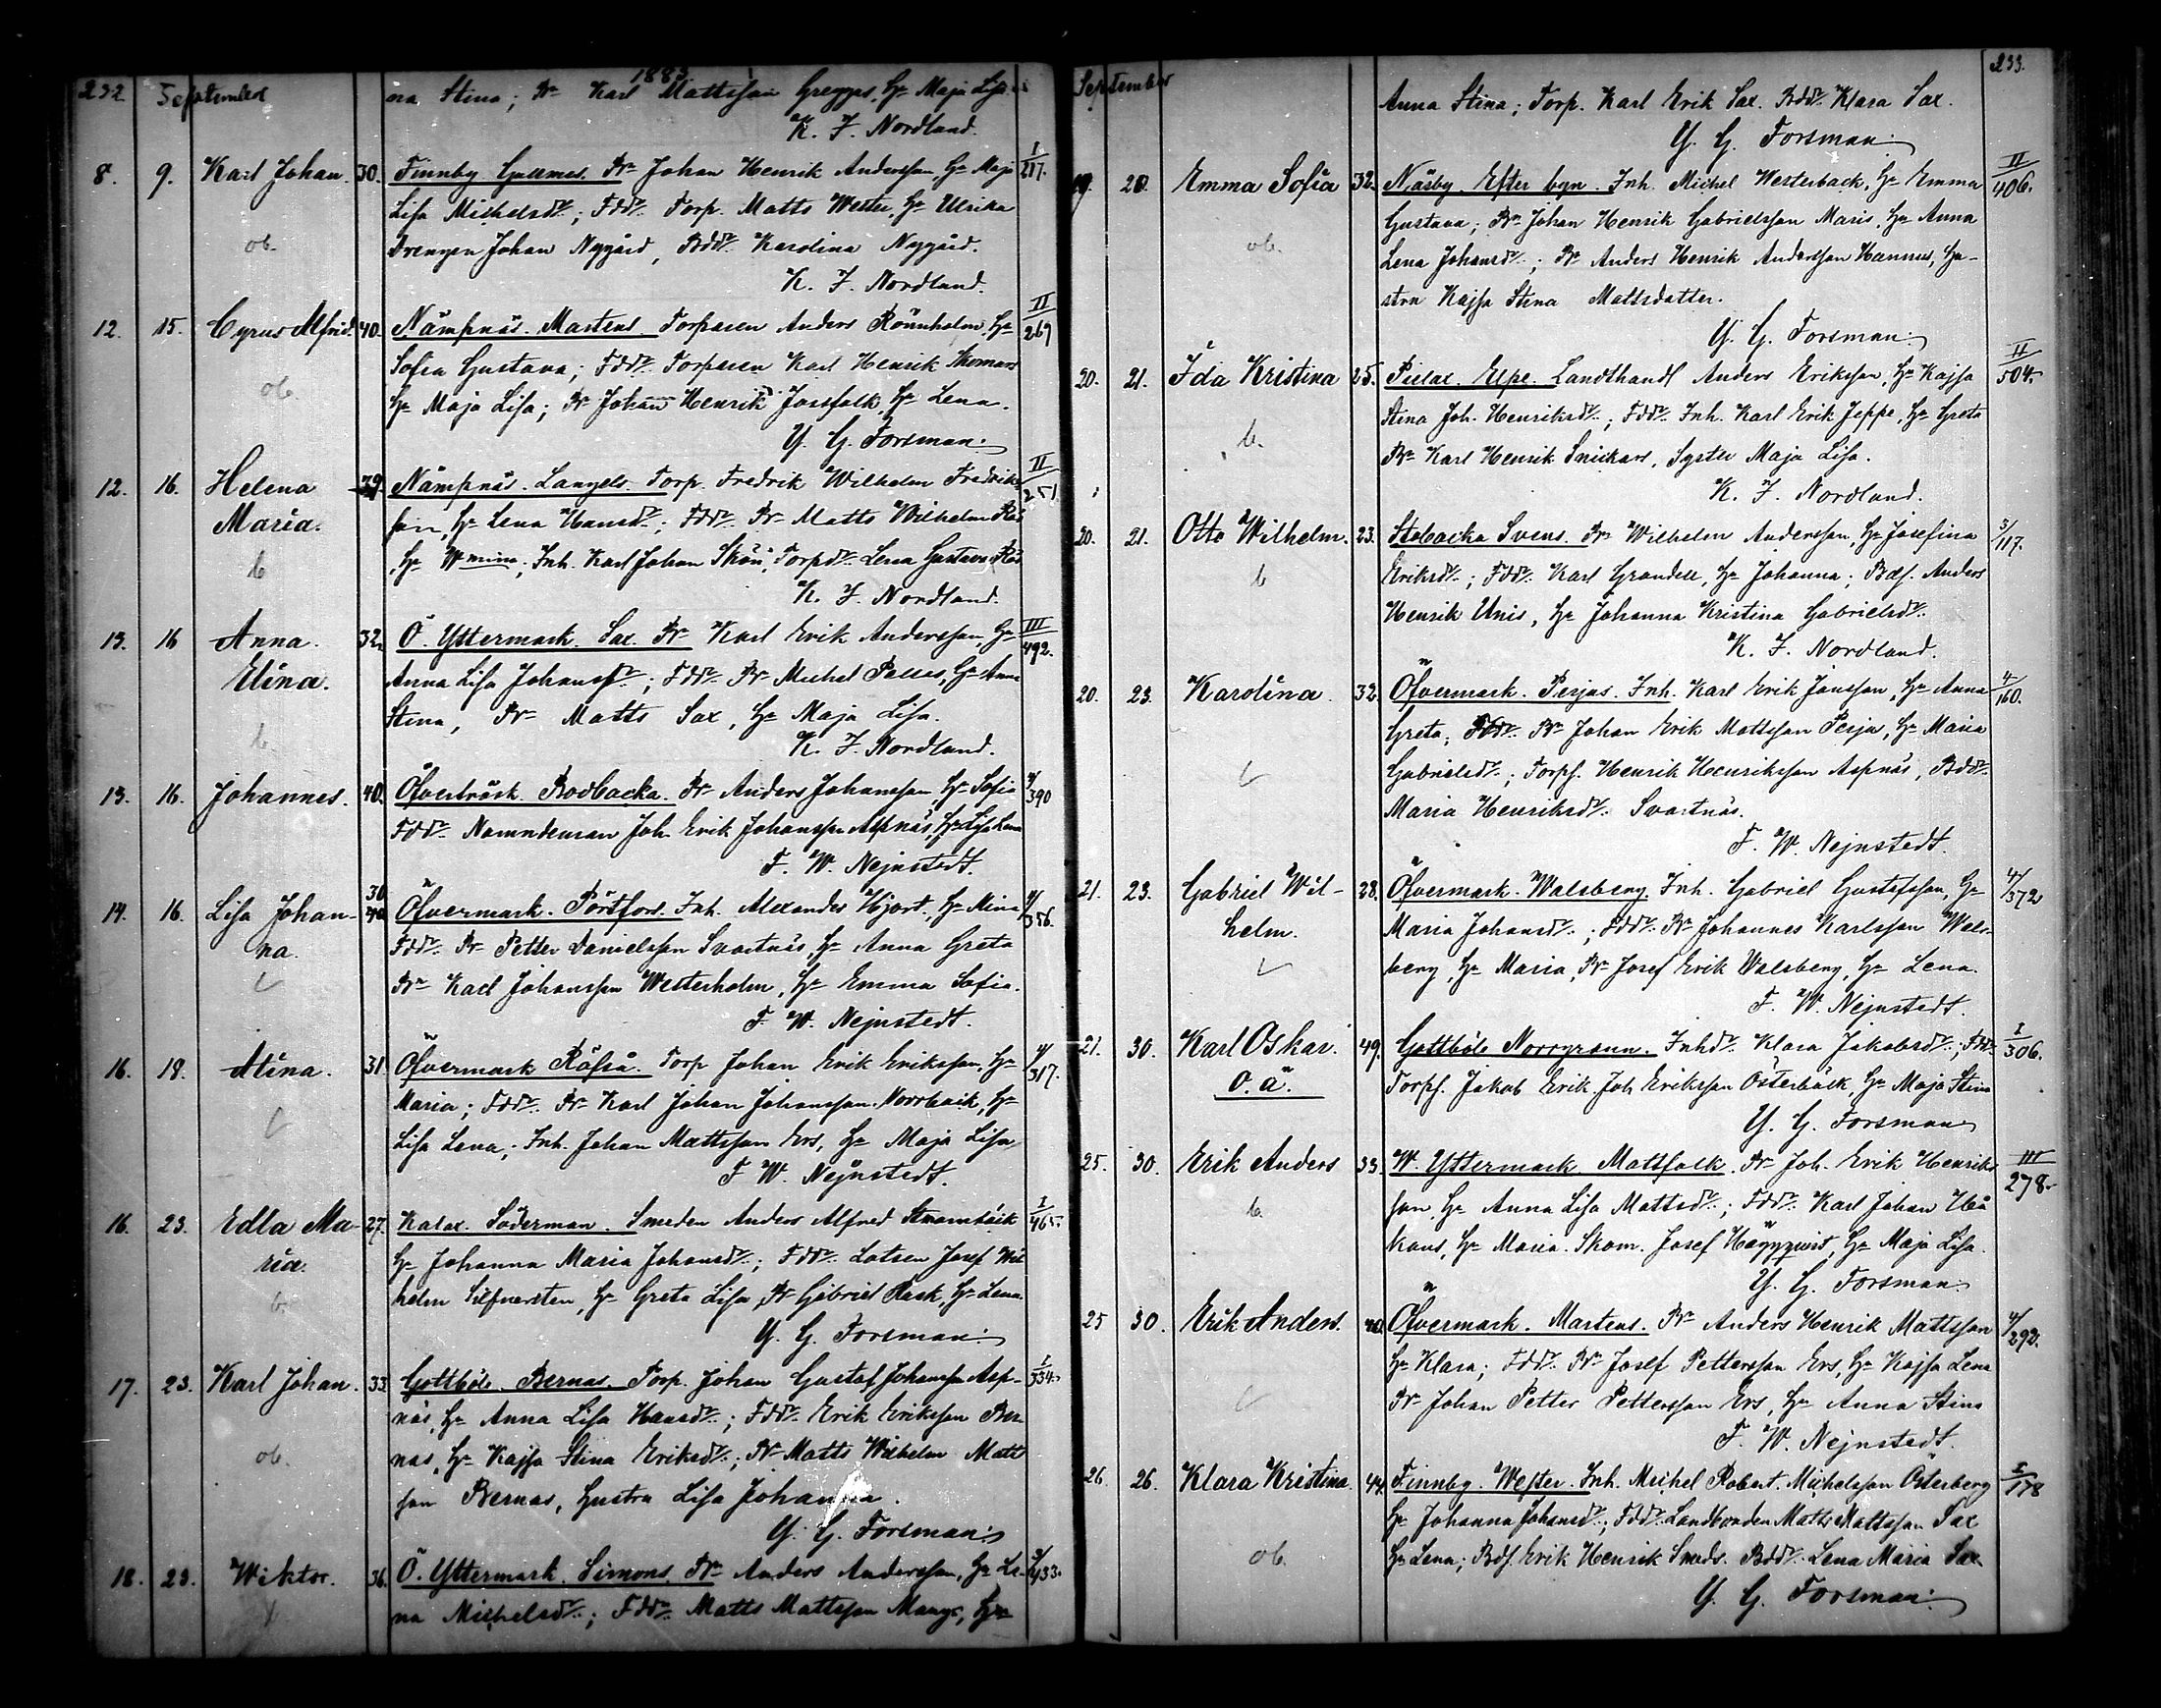 232 September 1883
na Stina; Bn Karl Mattsson Greggas, Hu Maja Lisa
K. F. Nordlund.
8. 9. Karl Johan. 30. Finnby Gullmes. Bn Johan Henrik Andersson, Hu Maja I/217.
Lisa Michelsdr; Fddr Torp. Matts Wester, Hu Ulrika
ob. Drengen Johan Nygård, Bddr Karolina Nygård.
K. F. Nordlund.
12. 15. Cyrus Alfrid. 40. Nämpnäs. Mårtens. Torparen Anders Rönnholm, Hu II/269
Sofia Gustava; Fddr Torparen Karl Henrik Skomars
ob. Hu Maja Lisa; Bn Johan Henrik Jossfolk, Hu Lena.
Y. G. Forsman.
12. 16. Helena 39. Nämpnäs. Langels. Torp. Fredrik Wilhelm Fredriks- II/251
Maria. son, Hu Lena Hansdr; Fddr Bn Matts Wilhelm Rös
b Hu Wmina; Inh. Karl Johan Skön, Torpdr Lena Gustava Rös
K. F. Nordlund.
13. 16 Anna. 32. Ö. Yttermark. Sax. Bn Karl Erik Andersson, Hu III/492.
Elina. Anna Lisa Johansdr; Fddr Bn Michel Palles, Hu Anna
Stina, Bn Matts Sax, Hu Maja Lisa.
b. K. F. Nordlund.
13. 16. Johannes. 40. Öfverträsk. Rodbacka. Bn Anders Johansson, Hu Sofia 4/390
Fddr Nämndeman Joh. Erik Johansson Aspnäs, Hu Lisa Lena
F. W. Nejnstedt.
30
14. 16. Lisa Johan- 40 Öfvermark. Pörtfors. Inh. Alexander Hjort, Hu Mina 4/356.
na. Fddr Bn Petter Danielsson Svartnäs, Hu Anna Greta
Bn Karl Johansson Westerholm, Hu Emma Sofia.
F. W. Nejnstedt.
16. 18. Alina. 31 Öfvermark Räfså. Torp Johan Erik Eriksson, Hu 4/317.
Maria; Fddr Bn Karl Johan Johansson Norrback, Hu
Lisa Lena; Inh. Johan Mattsson Ers, Hu Maja Lisa
F. W. Nejnstedt.
16. 23. Edla Ma- 27. Kalax. Söderman. Smeden Anders Alfred Strömbäck I/465.
ria. Hu Johanna Maria Johansdr; Fddr Lotsen Josef Wil
b. helm Silfversten, Hu Greta Lisa, Bn Gabriel Rask, Hu Lena
Y. G. Forsman.
17. 23. Karl Johan. 33. Gottböle. Bernas. Torp. Johan Gustaf Johansson Asp- I/334.
näs, Hu Anna Lisa Hansdr; Fddr Erik Eriksson Ber-
ob. nas, Hu Kajsa Stina Eriksdr; Bn Matts Wilhelm Matt
son Bernas, Hustru Lisa Johanna.
Y. G. Forsman.
18. 23. Wiktor. 36. Ö. Yttermark. Simons. Bn Anders Andersson, Hu Le- 3/433.
b na Michelsdr; Fddr Matts Mattsson Mangs, Hu
September 233.
Anna Stina; Torp. Karl Erik Sax. Bddr Klara Sax.
Y. G. Forsman.
19. 20. Emma Sofia 32. Näsby. Efter byn. Inh. Michel Westerback, Hu Emma II/406.
Gustava; Bn Johan Henrik Gabrielsson Maris, Hu Anna
ob. Lena Johansdr; Bn Anders Henrik Andersson Hannus, Hu-
stru Kajsa Stina Mattsdotter.
Y. G. Forsman.
20. 21. Ida Kristina 25. Pjelax. Elpe. Landthandl Anders Eriksson, Hu Kajsa II/504.
Stina Joh. Henriksdr; Fddr Inh. Karl Erik Jeppe, Hu Greta
b. Bn Karl Henrik Snickars, Syster Maja Lisa.
K. F. Nordlund.
20. 21. Otto Wilhelm. 23. Stobacka Svens. Bn Wilhelm Andersson, Hu Josefina 3/117.
b Eriksdr; Fddr Karl Grandell, Hu Johanna; Bds. Anders
Henrik Unis, Hu Johanna Kristina Gabrielsdr.
K. F. Nordlund.
20. 23. Karolina. 32. Öfvermark. Perjus. Inh. Karl Erik Jonsson, Hu Anna 4/160.
Greta; Fddr Bn Johan Erik Mattsson Perjus, Hu Maria
Gabrielsdr; Torps. Henrik Henriksson Aspnäs, Bddr
Maria Henriksdr Svartnäs.
F. W. Nejnstedt.
21. 23. Gabriel Wil- 28. Öfvermark. Walsberg. Inh. Gabriel Gustafsson, Hu 4/372
helm. Maria Johansdr; Fddr Bn Johannes Karlsson Wals-
berg, Hu Maria, Bn Josef Erik Walsberg, Hu Lena.
F. W. Nejnstedt.
21. 30. Karl Oskar. 49. Gottböle Norrgrann. Inhdr Klara Jakobsdr; Fddr I/306.
o. ä. Torps. Jakob Erik Joh Eriksson Österbäck, Hu Maja Stina
Y. G. Forsman
25. 30. Erik Anders 33. W. Yttermark Mattfolk. Bn Joh. Erik Henriks III/278.
b son, Hu Anna Lisa Mattsdr; Fddr Karl Johan
kans, Hu Maria. Skom. Josef Häggqvist, Hu Maja Lisa.
Y. G. Forsman.
25 30. Erik Anders. 40. Öfvermark. Martens. Bn Anders Henrik Mattsson 4/292.
Hu Klara; Fddr Bn Josef Pettersson Ers, Hu Kajsa Lena
Bn Johan Petter Pettersson Ers, Hu Anna Stina
F. W. Nejnstedt.
26. 26. Klara Kristina. 44. Finnby. Wester. Inh. Michel Robert Michelsson Österberg I/178
Hu Johanna Johansdr; Fddr Landbonden Matts Mattsson Sax
ob. Hu Lena; Bds. Erik Henrik Smeds. Bddr Lena Maria Sax
Y. G. Forsman.